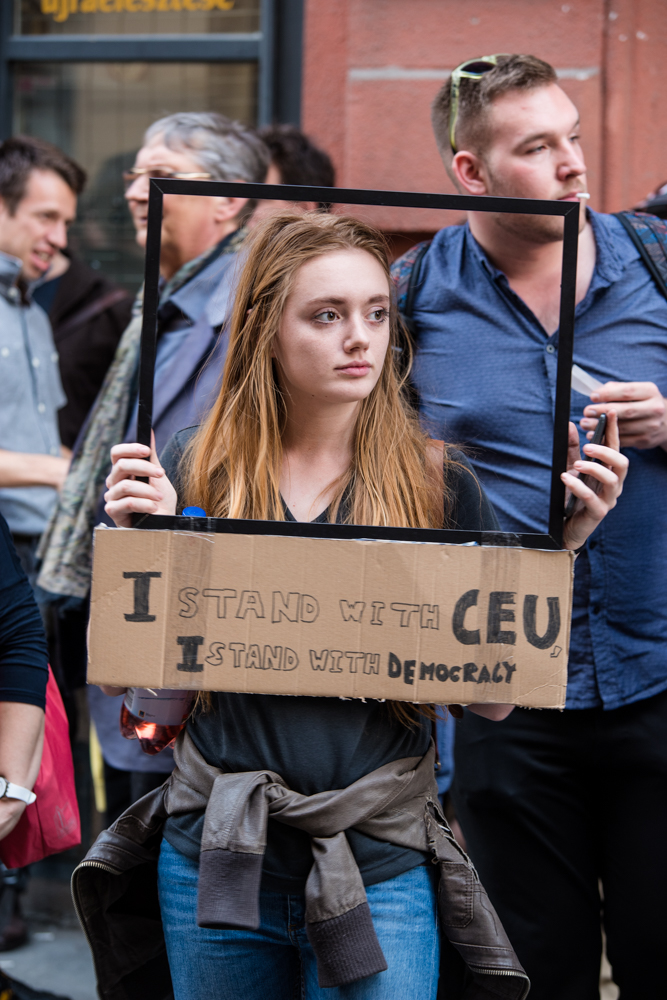 újraélesztése
I STAND WITH CEU,
I STAND WITH DEMOCRACY